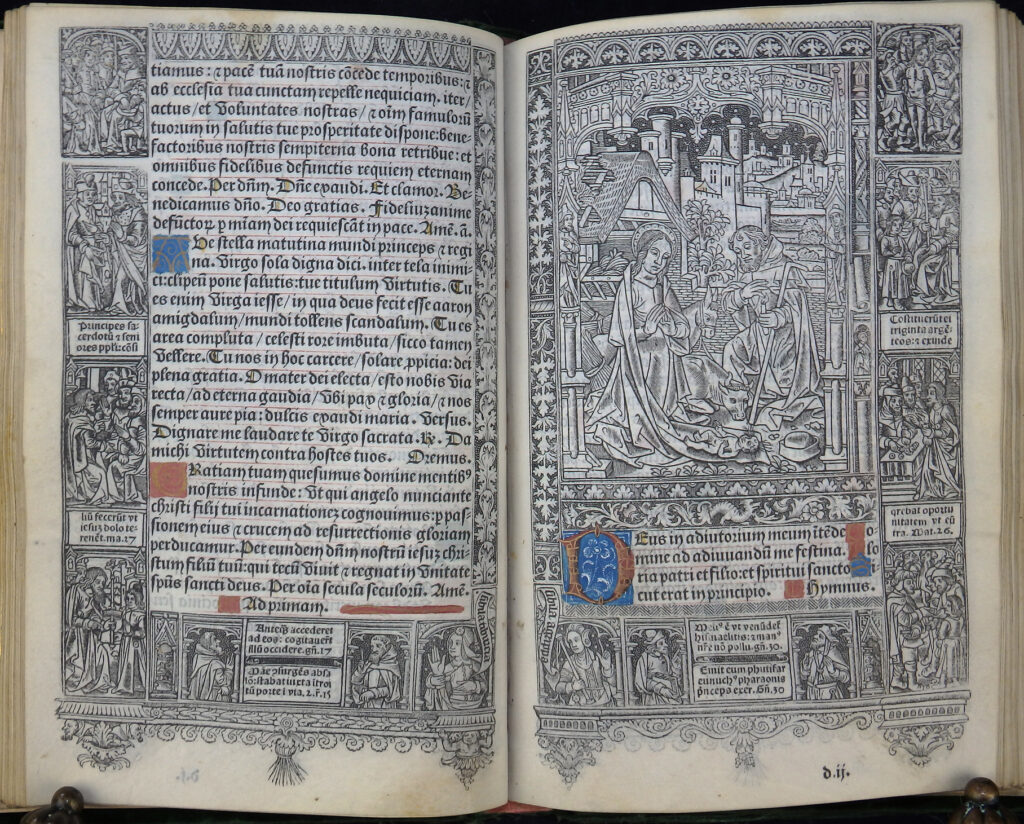 tiamus: ⁊ pacē tuā nostris cōcede temporibus: ⁊
ab ecclesia tua cunctam repelle nequiciam. iter/
actus/et voluntates nostras/⁊ oīm famulorū
tuorum in salutis tue prosperitate dispone: bene
factoribus nostris sempiterna bona retribue: et
omnibus fidelibus defunctis requiem eternam
concede. Per dn̄m. Dn̄e exaudi. Et clamor. Be
nedicamus dn̄o. Deo gratias. Fideliū anime
defūctor̄ p miam dei requiescāt in pace. Amē. a.
Ave stella matutina mundi princeps ⁊ regi
na. Virgo sola digna dici. inter tela inimi
ci: clipeū pone salutis: tue titulum virtutis. Tu
es enim virga iesse/in qua deus fecit esse aaron
amigdalum/mundi tollens scandalum. Tu es
area compluta/celesti rore imbuta/sicco tamen
vellere. Tu nos in hoc carcere/solare ppicia: dei
plena gratia. O mater dei electa/esto nobis via
recta/ad eterna gaudia/vbi pax ⁊ gloria/⁊ nos
semper aure pia: dulcis exaudi maria. Versus.
Dignare me laudare te virgo sacrata. R̄. Da
michi virtutem contra hostes tuos. Oremus.
Gratiam tuam quesumus domine mentibꝰ
nostris infunde: vt qui angelo nunciante
christi filij tui incarnationez cognouimus: p pas
sionem eius ⁊ crucem ad resurrectionis gloriam
perducamur. Per eundem dn̄m nostrū iesuz chri
stum filiū tuū: qui tecū viuit ⁊ regnat in vnitate
spūs sancti deus. Per oīa secula seculorū. Amē.
Ad primam.
Principes sa
cerdotū ⁊ seni
ores ppli: cōsi
liū fecerūt vt
iesuz dolo te
renēt. ma. 27
Anteqꝫ accederet
ad eos: cogitauerūt
illū occidere. gn̄. 17
stabat iuxta ītroi
tū porte ī via. 2. r̄. 15
Deus in adiutorium meum ītēde. Do
mine ad adiuuandū me festina. Glo
ria patri et filio: et spiritui sancto. Si
cut erat in principio. Hymnus.
Cōstituerūt ei
triginta argē
teos: ⁊ exinde
qrebat oportu
nitatem vt eū
tra. Mat. 26.
Emit eum phutifar
eunuchꝰ pharaonis
p̄nceps exer. Gn̄. 30
d.ij.